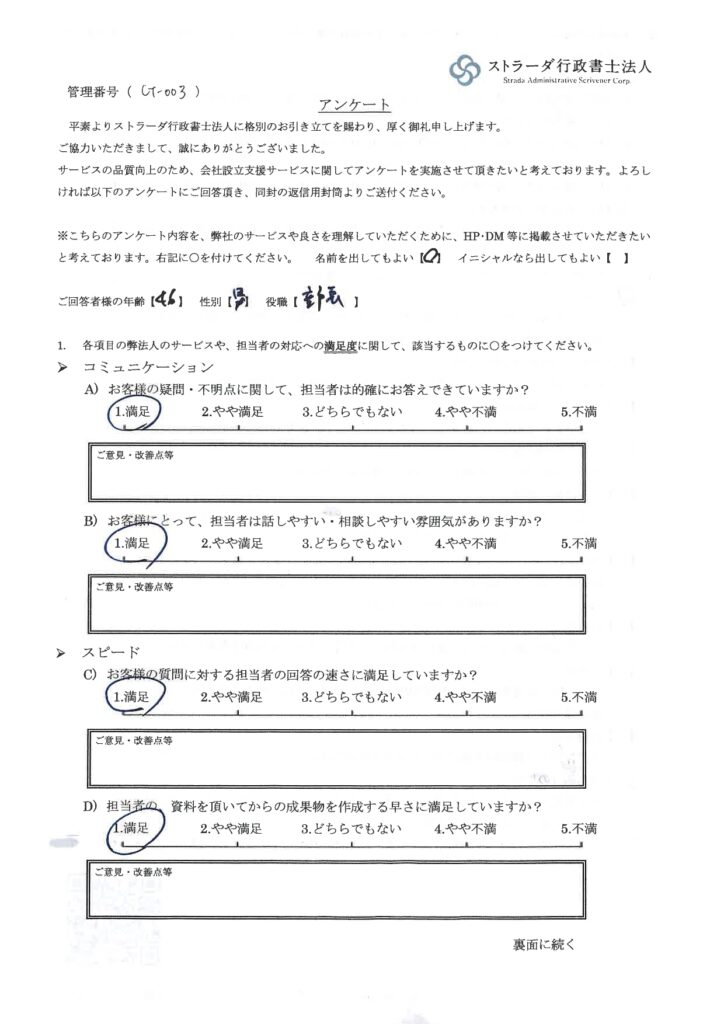 ストラーダ行政書士法人
Strada Administrative Scrivener Corp.
管理番号（ CT-003 ）
アンケート
平素よりストラーダ行政書士法人に格別のお引き立てを賜わり、厚く御礼申し上げます。
ご協力いただきまして、誠にありがとうございました。
サービスの品質向上のため、会社設立支援サービスに関してアンケートを実施させて頂きたいと考えております。よろし
ければ以下のアンケートにご回答頂き、同封の返信用封筒よりご送付ください。
※こちらのアンケート内容を、弊社のサービスや良さを理解していただくために、HP･DM 等に掲載させていただきたい
と考えております。右記に○を付けてください。 名前を出してもよい【○】 イニシャルなら出してもよい【 】
ご回答者様の年齢【46】 性別【男】 役職【部長 】
1. 各項目の弊法人のサービスや、担当者の対応への満足度に関して、該当するものに○をつけてください。
➢ コミュニケーション
A) お客様の疑問・不明点に関して、担当者は的確にお答えできていますか？
1.満足 2.やや満足 3.どちらでもない 4.やや不満 5.不満
ご意見・改善点等
B) お客様にとって、担当者は話しやすい・相談しやすい雰囲気がありますか？
1.満足 2.やや満足 3.どちらでもない 4.やや不満 5.不満
ご意見・改善点等
➢ スピード
C) お客様の質問に対する担当者の回答の速さに満足していますか？
1.満足 2.やや満足 3.どちらでもない 4.やや不満 5.不満
ご意見・改善点等
D) 担当者の、資料を頂いてからの成果物を作成する早さに満足していますか？
1.満足 2.やや満足 3.どちらでもない 4.やや不満 5.不満
ご意見・改善点等
裏面に続く